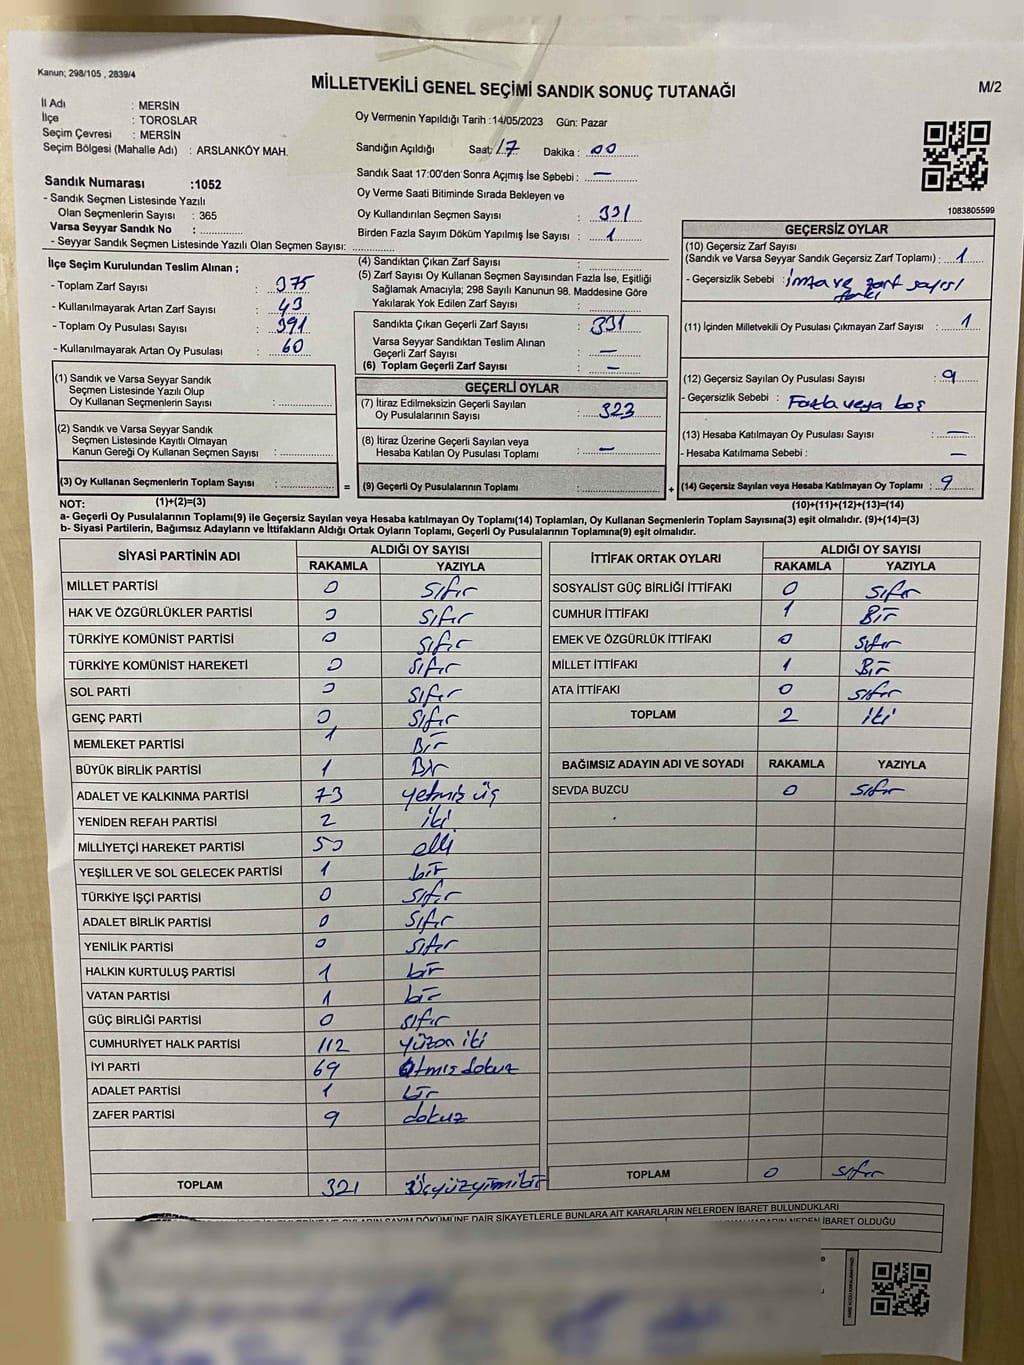 Kanun; 298/105 , 2839/4
MİLLETVEKİLİ GENEL SEÇİMİ SANDIK SONUÇ TUTANAĞI
M/2
İl Adı : MERSİN
İlçe : TOROSLAR
Seçim Çevresi : MERSİN
Seçim Bölgesi (Mahalle Adı) : ARSLANKÖY MAH.
Sandık Numarası :1052
- Sandık Seçmen Listesinde Yazılı
Olan Seçmenlerin Sayısı : 365
Varsa Seyyar Sandık No :
- Seyyar Sandık Seçmen Listesinde Yazılı Olan Seçmen Sayısı:
Oy Vermenin Yapıldığı Tarih :14/05/2023 Gün: Pazar
Sandığın Açıldığı Saat: 17 Dakika : 00
Sandık Saat 17:00'den Sonra Açılmış İse Sebebi : —
Oy Verme Saati Bitiminde Sırada Bekleyen ve
Oy Kullandırılan Seçmen Sayısı : 331
Birden Fazla Sayım Döküm Yapılmış İse Sayısı : 1
1083805599
İlçe Seçim Kurulundan Teslim Alınan ;
- Toplam Zarf Sayısı : 375
- Kullanılmayarak Artan Zarf Sayısı : 43
- Toplam Oy Pusulası Sayısı : 391
- Kullanılmayarak Artan Oy Pusulası : 60
(1) Sandık ve Varsa Seyyar Sandık
Seçmen Listesinde Yazılı Olup
Oy Kullanan Seçmenlerin Sayısı :
(2) Sandık ve Varsa Seyyar Sandık
Seçmen Listesinde Kayıtlı Olmayan
Kanun Gereği Oy Kullanan Seçmen Sayısı :
(3) Oy Kullanan Seçmenlerin Toplam Sayısı :
(4) Sandıktan Çıkan Zarf Sayısı :
(5) Zarf Sayısı Oy Kullanan Seçmen Sayısından Fazla İse, Eşitliği
Sağlamak Amacıyla; 298 Sayılı Kanunun 98. Maddesine Göre
Yakılarak Yok Edilen Zarf Sayısı :
Sandıkta Çıkan Geçerli Zarf Sayısı : 331
Varsa Seyyar Sandıktan Teslim Alınan
Geçerli Zarf Sayısı : —
(6) Toplam Geçerli Zarf Sayısı : —
GEÇERLİ OYLAR
(7) İtiraz Edilmeksizin Geçerli Sayılan
Oy Pusulalarının Sayısı : 323
(8) İtiraz Üzerine Geçerli Sayılan veya
Hesaba Katılan Oy Pusulası Toplamı : —
= (9) Geçerli Oy Pusulalarının Toplamı :
GEÇERSİZ OYLAR
(10) Geçersiz Zarf Sayısı
(Sandık ve Varsa Seyyar Sandık Geçersiz Zarf Toplamı) : 1
- Geçersizlik Sebebi : imza ve zarf sayısı
farkı
(11) İçinden Milletvekili Oy Pusulası Çıkmayan Zarf Sayısı : 1
(12) Geçersiz Sayılan Oy Pusulası Sayısı : 9
- Geçersizlik Sebebi : Fazla veya boş
(13) Hesaba Katılmayan Oy Pusulası Sayısı : —
- Hesaba Katılmama Sebebi : —
+ (14) Geçersiz Sayılan veya Hesaba Katılmayan Oy Toplamı : 9
NOT: (1)+(2)=(3)
(10)+(11)+(12)+(13)=(14)
a- Geçerli Oy Pusulalarının Toplamı(9) ile Geçersiz Sayılan veya Hesaba katılmayan Oy Toplamı(14) Toplamları, Oy Kullanan Seçmenlerin Toplam Sayısına(3) eşit olmalıdır. (9)+(14)=(3)
b- Siyasi Partilerin, Bağımsız Adayların ve İttifakların Aldığı Ortak Oyların Toplamı, Geçerli Oy Pusulalarının Toplamına(9) eşit olmalıdır.
SİYASİ PARTİNİN ADI ALDIĞI OY SAYISI
RAKAMLA YAZIYLA
MİLLET PARTİSİ 0 sıfır
HAK VE ÖZGÜRLÜKLER PARTİSİ 0 sıfır
TÜRKİYE KOMÜNİST PARTİSİ 0 sıfır
TÜRKİYE KOMÜNİST HAREKETİ 0 sıfır
SOL PARTİ 0 sıfır
GENÇ PARTİ 0 sıfır
MEMLEKET PARTİSİ 1 Bir
BÜYÜK BİRLİK PARTİSİ 1 Bir
ADALET VE KALKINMA PARTİSİ 73 yetmiş üç
YENİDEN REFAH PARTİSİ 2 iki
MİLLİYETÇİ HAREKET PARTİSİ 50 elli
YEŞİLLER VE SOL GELECEK PARTİSİ 1 bir
TÜRKİYE İŞÇİ PARTİSİ 0 sıfır
ADALET BİRLİK PARTİSİ 0 sıfır
YENİLİK PARTİSİ 0 sıfır
HALKIN KURTULUŞ PARTİSİ 1 bir
VATAN PARTİSİ 1 bir
GÜÇ BİRLİĞİ PARTİSİ 0 sıfır
CUMHURİYET HALK PARTİSİ 112 yüzon iki
İYİ PARTİ 69 Atmış dokuz
ADALET PARTİSİ 1 bir
ZAFER PARTİSİ 9 dokuz
TOPLAM 321 Üçyüzyirmibir
İTTİFAK ORTAK OYLARI ALDIĞI OY SAYISI
RAKAMLA YAZIYLA
SOSYALİST GÜÇ BİRLİĞİ İTTİFAKI 0 sıfır
CUMHUR İTTİFAKI 1 Bir
EMEK VE ÖZGÜRLÜK İTTİFAKI 0 sıfır
MİLLET İTTİFAKI 1 Bir
ATA İTTİFAKI 0 sıfır
TOPLAM 2 iki
BAĞIMSIZ ADAYIN ADI VE SOYADI RAKAMLA YAZIYLA
SEVDA BUZCU 0 sıfır
TOPLAM 0 sıfır
SAYIM DÖKÜMÜNE DAİR ŞİKAYETLERLE BUNLARA AİT KARARLARIN NELERDEN İBARET BULUNDUKLARI
İBARET OLDUĞU